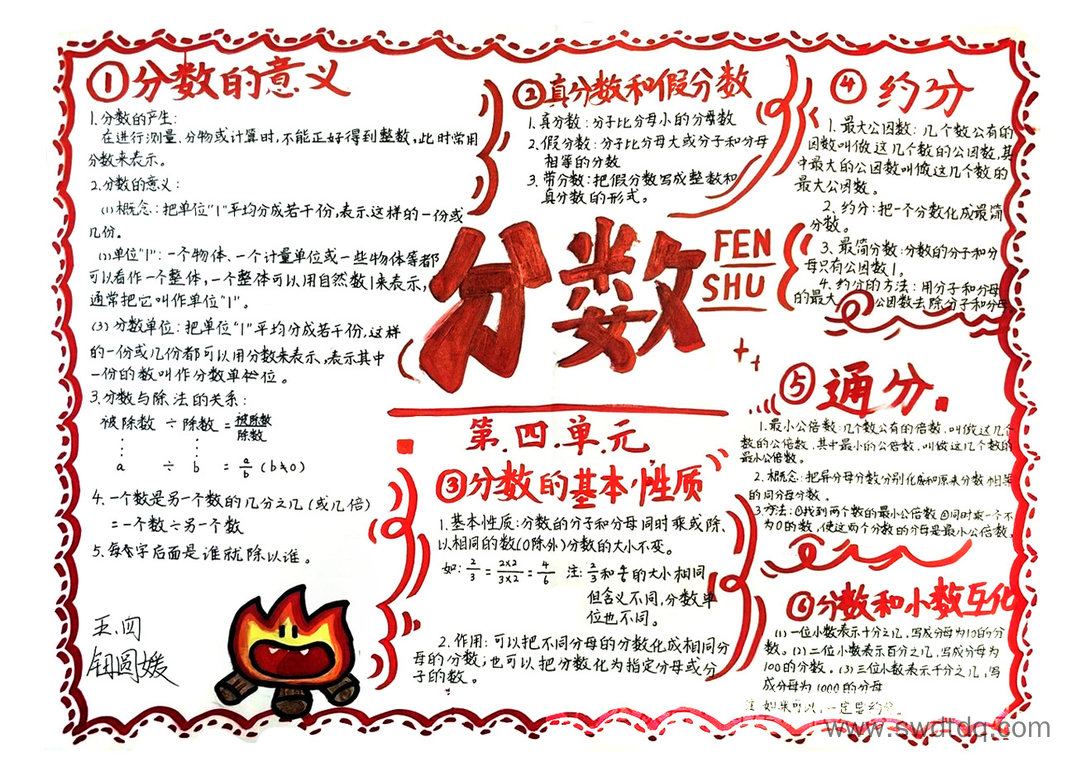 ①分数的意义
1.分数的产生:
在进行测量、分物或计算时,不能正好得到整数,此时常用
分数来表示。
2.分数的意义:
(1)概念:把单位"1"平均分成若干份,表示这样的一份或
几份。
(2)单位"1":一个物体、一个计量单位或一些物体等都
可以看作一个整体,一个整体可以用自然数1来表示,
通常把它叫作单位"1"。
(3)分数单位:把单位"1"平均分成若干份,这样
的一份或几份都可以用分数来表示,表示其中
一份的数叫作分数单位。
3.分数与除法的关系:
被除数 ÷ 除数 = 被除数/除数
a ÷ b = a/b (b≠0)
4.一个数是另一个数的几分之几(或几倍)
=一个数÷另一个数
5.每字后面是谁就除以谁。
五.四
圆媛
②真分数和假分数
1.真分数:分子比分母小的分数
2.假分数:分子比分母大或分子和分母
相等的分数
3.带分数:把假分数写成整数和
真分数的形式。
分数
FEN
SHU
第.四.单元
③分数的基本性质
1.基本性质:分数的分子和分母同时乘或除
以相同的数(0除外)分数的大小不变。
如:2/3=2×2/3×2=4/6 注:2/3和4/6的大小相同
但含义不同,分数单
位也不同。
2.作用:可以把不同分母的分数化成相同分
母的分数;也可以把分数化为指定分母或分
子的数。
④约分
1.最大公因数:几个数公有的
因数叫做这几个数的公因数,其
中最大的公因数叫做这几个数的
最大公因数。
2.约分:把一个分数化成最简
分数。
3.最简分数:分数的分子和分
母只有公因数1。
4.约分的方法:用分子和分母
的最大公因数去除分子和分母
⑤通分
1.最小公倍数:几个数公有的倍数,叫做这几个
数的公倍数,其中最小的公倍数,叫做这几个数的
最小公倍数。
2.概念:把异分母分数分别化成和原来分数相等
的同分母分数。
3.方法:①找到两个数的最小公倍数②同时乘一个不
为0的数,使这两个分数的分母是最小公倍数。
⑥分数和小数互化
(1)一位小数表示十分之几,写成分母为10的分
数。(2)二位小数表示百分之几,写成分母为
100的分数。(3)三位小数表示千分之几,写
成分母为1000的分母
注:如果可以,一定要约分。
www.swdtdq.com